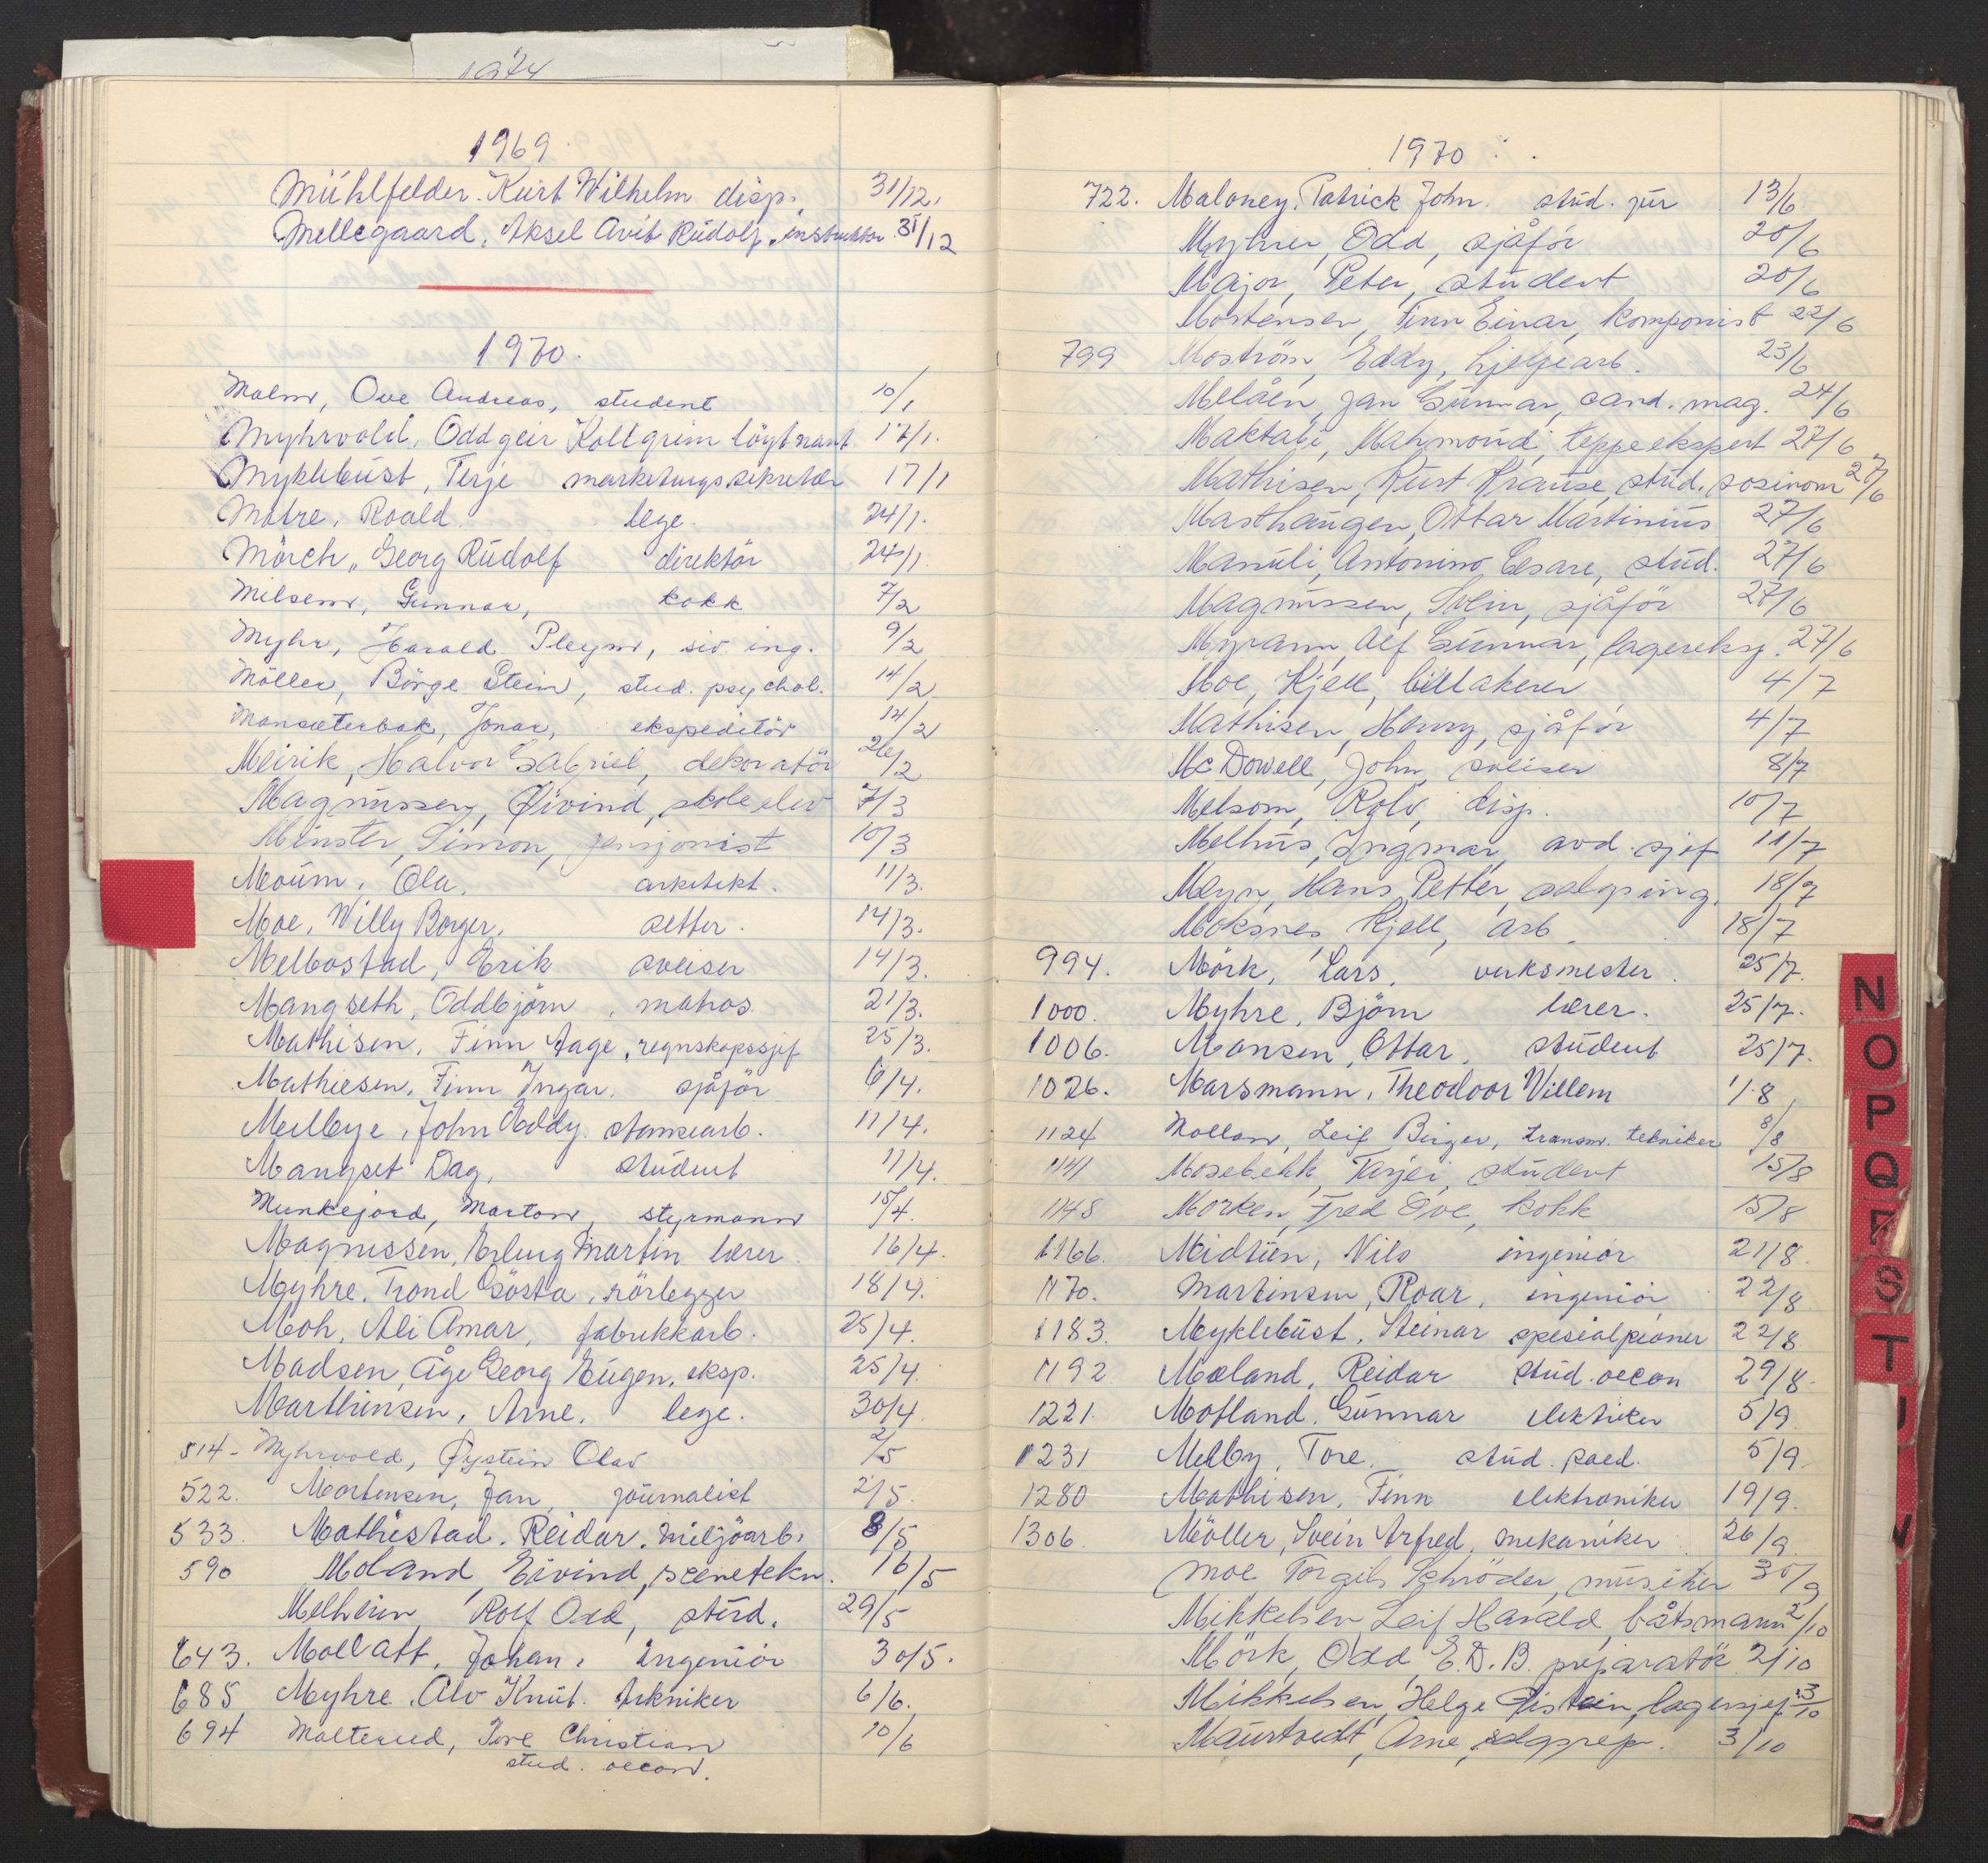 1974
1969
Mühlfelder. Kurt Wilhelm disp. 31/12.
Mellegaard, Aksel Avit Rudolf, instruktør 31/12
1970.
Malm, Ove Andreas, student 10/1
Myhrvold, Oddgeir Kollgrim löytnant 17/1.
Myklebust, Terje marketingssekretær 17/1
Matre, Roald lege 24/1.
Mörch, Georg Rudolf direktör 24/1
Milsem, Gunnar, kokk 7/2
Myhr, Harald Pleym, siv ing. 9/2
Möller, Börge Stein, stud. psychol. 14/2
Mansæterbak, Jonar, ekspeditör 14/2
Meirik, Halvor Gabriel, dekoratör 26/2
Magnussen, Øivind, skoleelev 7/3
Minster, Simon, pensjonist 10/3
Moum, Ola, arkitekt. 11/3.
Moe, Willy Borger, setter. 14/3.
Melbostad, Erik sveiser 14/3.
Mangseth, Oddbjörn, matros 21/3.
Mathisen, Finn Aage, regnskapssjef 25/3.
Mathiesen, Finn Ingar. sjåför 6/4.
Melbye, John Eddy. stansearb. 11/4.
Mangset Dag, student 11/4.
Munkejord, Marton, styrmann 15/4.
Magnussen, Erling Martin lærer 16/4.
Myhre, Trond Gösta, rörlegger 18/4.
Moh, Ali Amar, fabrikkarb. 25/4.
Madsen, Åge Georg Eugen, eksp. 25/4.
Marthinsen, Arne, lege. 30/4
514- Myhrvold, Øystein Olav 2/5
522. Mortensen, Jan, journalist 2/5.
533. Mathistad. Reidar. miljöarb. 8/5
590 Moland, Eivind, scenetekn. 16/5
Melheim Rolf Odd, stud. 29/5
643. Mollatt, Johan, ingeniör 30/5.
685 Myhre, Alv Knut. tekniker 6/6.
694 Malterud, Tore Christian 10/6
stud. oecon.
1970
722. Maloney, Patrick John. stud. jur 13/6
Myhrer, Odd, sjåför 20/6
Major, Peter, student 20/6
Mortensen, Finn Einar, komponist 22/6
799 Moström, Eddy, hjelpearb. 23/6
Melåen, Jan Gunnar, cand. mag. 24/6
Maktabi, Mahmoud, teppeekspert 27/6
Mathisen, Kurt Krause, stud. sosinom 27/6
Masthaugen, Ottar Martinius 27/6
Manuli, Antonino Cesare, stud. 27/6
Magnussen, Svein, sjåför 27/6
Myrann, Alf Gunnar, lagereksp. 27/6
Moe, Kjell, billakerer 4/7
Mathisen, Henry, sjåför 4/7
McDowell, John, sveiser 8/7
Melsom, Rolv, disp. 10/7
Melhus, Ingmar, avd. sjef 11/7
Meyn, Hans Petter, salgsing. 18/7
Moksnes, Kjell, arb. 18/7
994. Mörk, Lars, verksmester. 25/7.
1000. Myhre, Björn lærer. 25/7.
1006. Monsen, Ottar, student 25/7.
1026. Marsmann, Theodoor Willem 1/8
1124 Mollan, Leif Birger, transm. tekniker 8/8
1141 Mosebekk, Tarjei, student 15/8
1145 Morken, Fred Ove, kokk 15/8
1166. Midtuen, Nils ingeniör 21/8.
1170. Martinsen, Roar, ingeniör 22/8
1183. Myklebust, Steinar spesialpioner 22/8
1192 Mæland, Reidar stud. oecon 29/8.
1221. Motland, Gunnar elektriker 5/9
1231 Melby, Tore. stud. paed. 5/9.
1280 Mathisen, Finn elektroniker 19/9.
1306. Möller, Svein Arfred, mekaniker 26/9.
Moe Torgils Schröder, musiker 30/9
Mikkelsen Leif Harald, båtsmann 2/10
Mörk, Odd, E.D.B. preparatör 2/10
Mikkelsen, Helge Øistein, lagersjef 3/10
Maurtvedt, Arne, salgsrepr. 3/10
N
O
P
Q
R
S
T